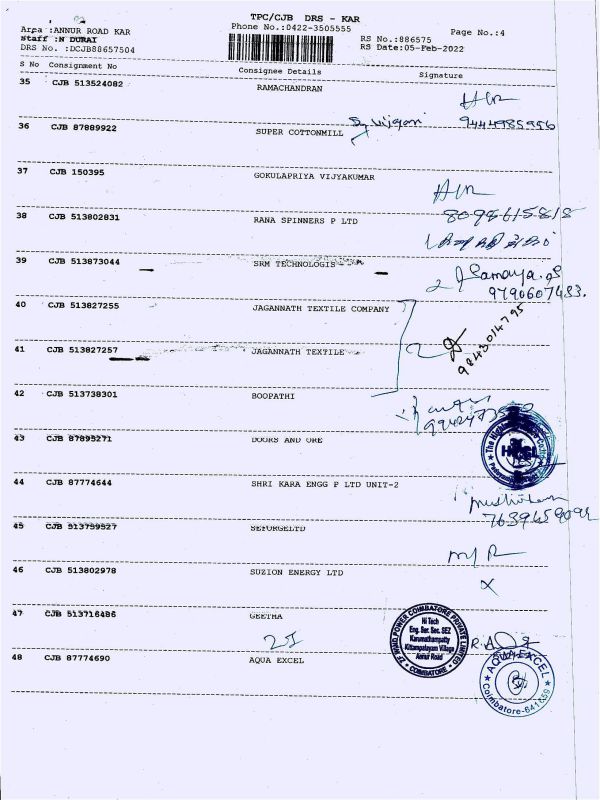 TPC/CJB DRS - KAR
Area :ANNUR ROAD KAR
Phone No.:0422-3505555
Page No.:4
Staff :N DURAI
RS No.:886575
DRS No. :DCJB88657504
RS Date:05-Feb-2022
S No Consignment No Consignee Details Signature
35 CJB 513524082 RAMACHANDRAN
9444985956
36 CJB 87889922 SUPER COTTONMILL
37 CJB 150395 GOKULAPRIYA VIJYAKUMAR
8098615818
38 CJB 513802831 RANA SPINNERS P LTD
39 CJB 513873044 SRM TECHNOLOGIS
9790607483.
40 CJB 513827255 JAGANNATH TEXTILE COMPANY
9843014795
41 CJB 513827257 JAGANNATH TEXTILE
42 CJB 513738301 BOOPATHI
43 CJB 87895271 DOORS AND ORE
44 CJB 87774644 SHRI KARA ENGG P LTD UNIT-2
45 CJB 513759527 SEFORGELTD
46 CJB 513802978 SUZION ENERGY LTD
X
47 CJB 513716486 GEETHA
ZF WIND POWER COIMBATORE PRIVATE LIMITED
Hi Tech
Eng. Ser. Sec. SEZ
Karumathampatty
Kittampalayam Village
Annur Road
COIMBATORE
48 CJB 87774690 AQUA EXCEL
AQUA EXCEL
Coimbatore-641659